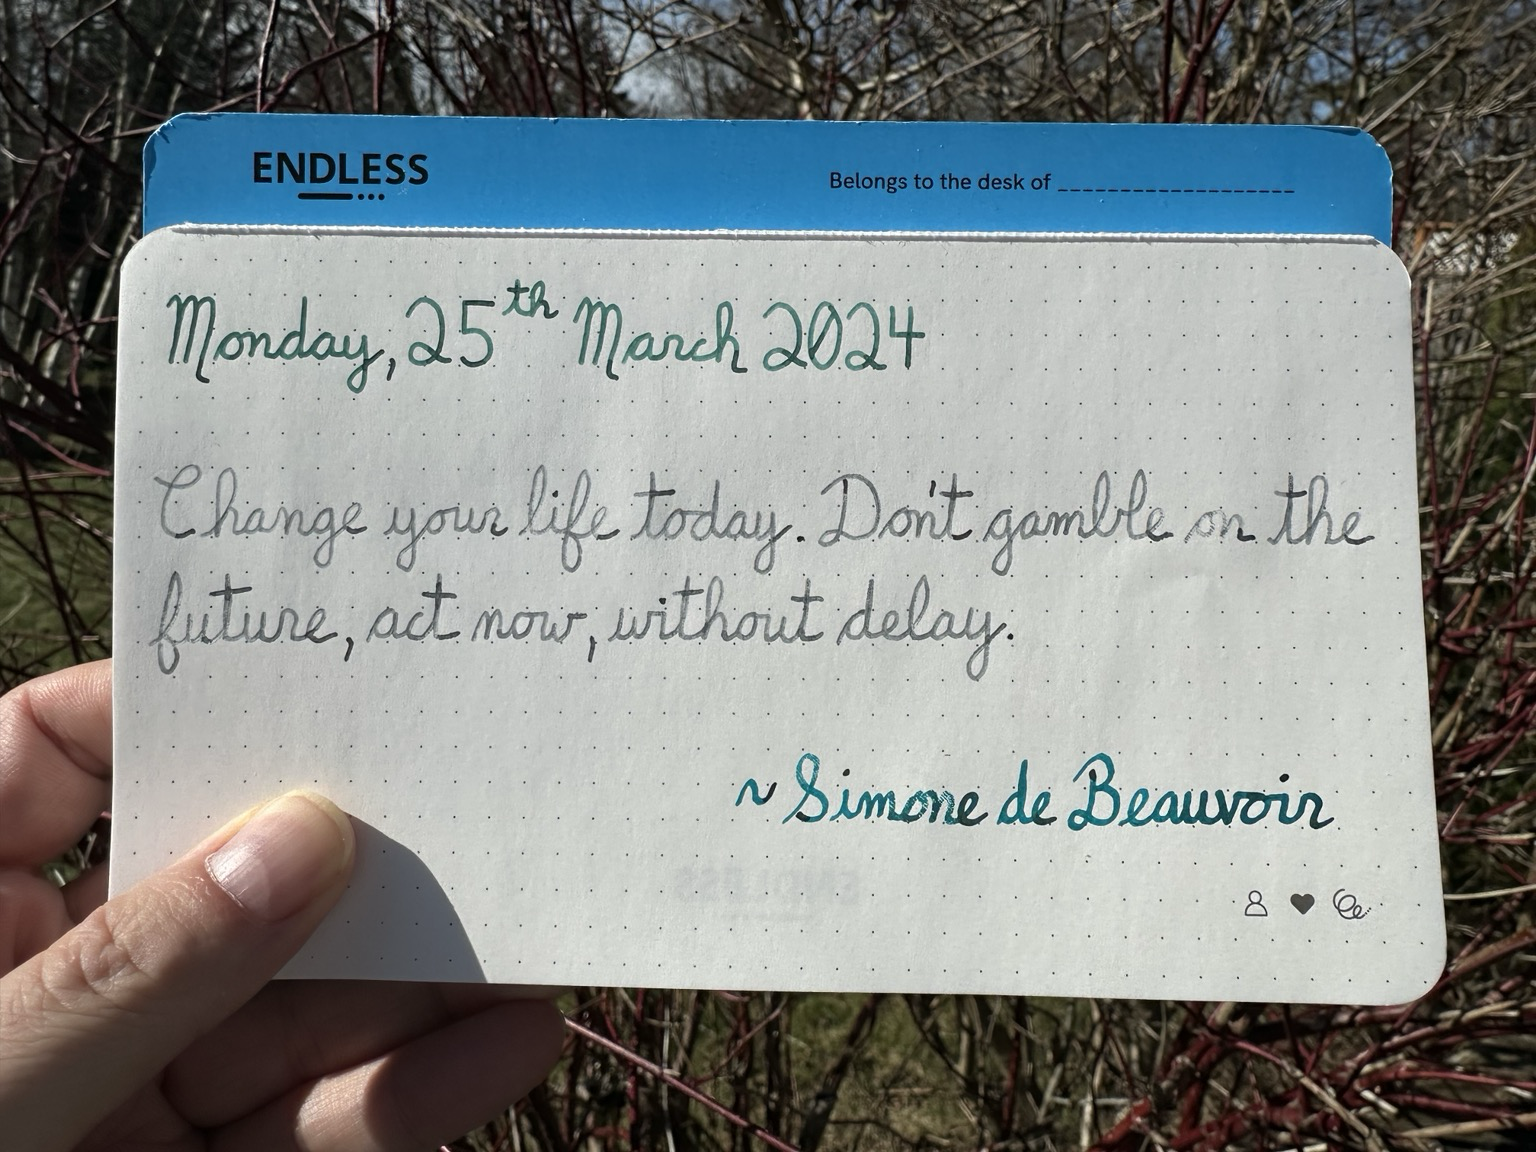 ENDLESS
Belongs to the desk of ____________________
Monday, 25th March 2024
Change your life today. Don't gamble on the
future, act now, without delay.
~ Simone de Beauvoir
ENDLESS